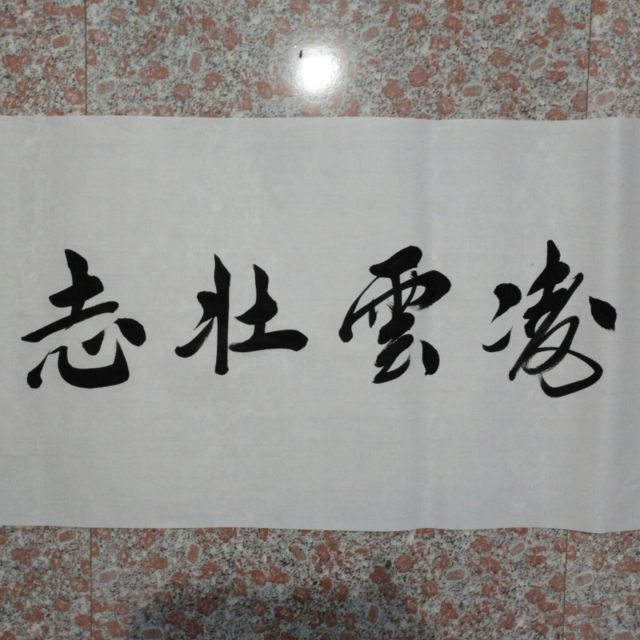 凌雲壮志